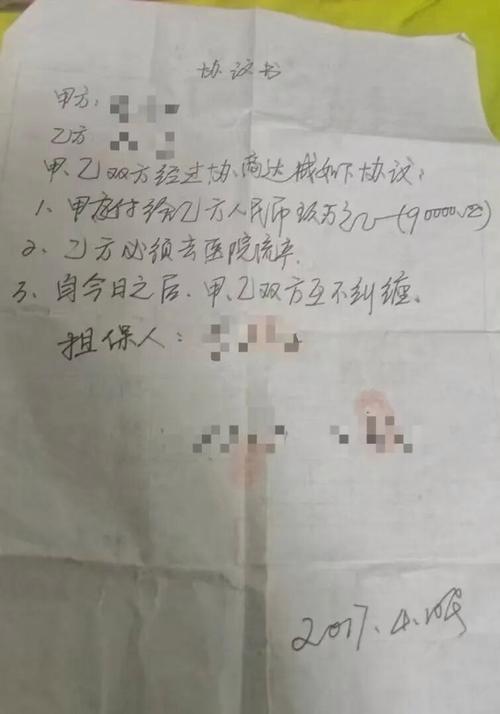 协议书
甲方:
乙方
甲、乙双方经过协商达成如下协议:
1、甲方付给乙方人民币玖万元(90000元)
2、乙方必须去医院流产.
3、自今日之后,甲、乙双方互不纠缠。
担保人:
2017.4.